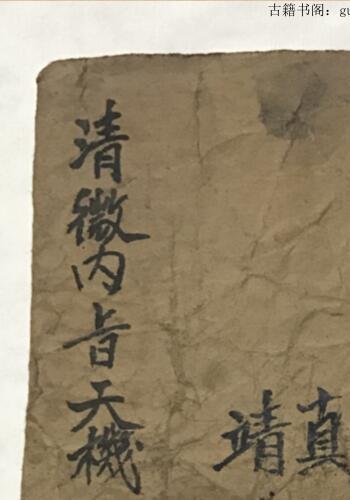 古籍书阁：gu
清微内旨天機
真
靖